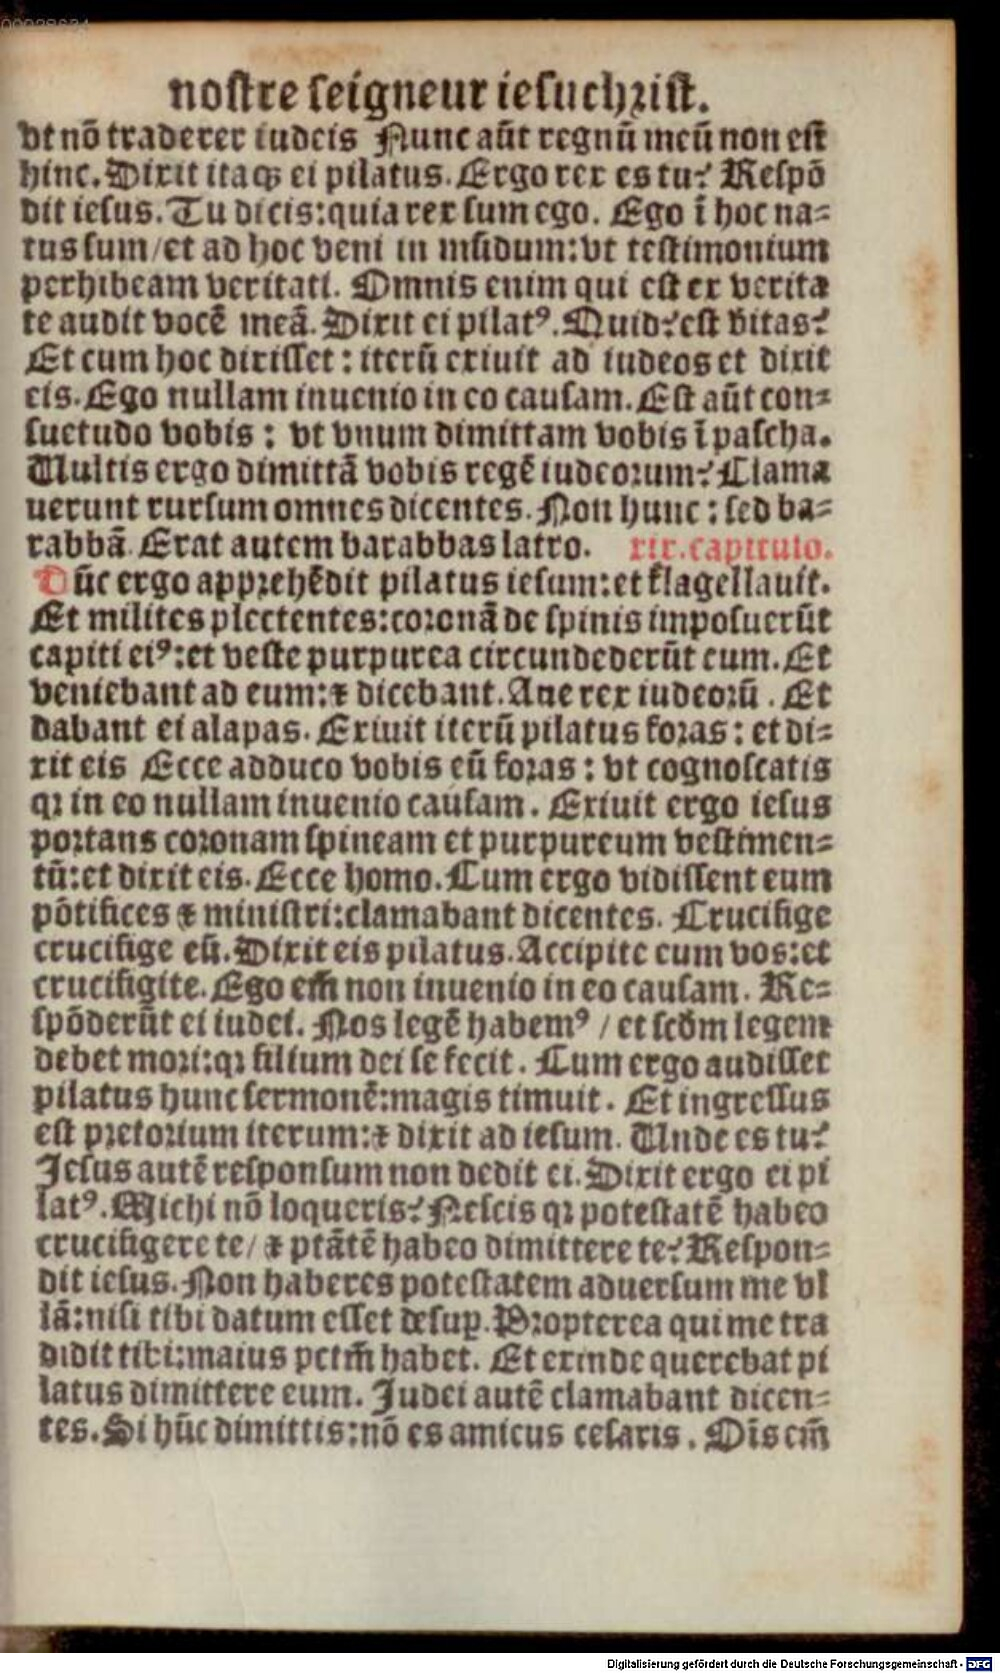 00028634
nostre seigneur iesuchrist.
vt nō traderer iudeis Nunc aūt regnū meū non est
hinc. Dixit itaqꝫ ei pilatus. Ergo rex es tu? Respō
dit iesus. Tu dicis: quia rex sum ego. Ego ī hoc na-
tus sum / et ad hoc veni in mūdum: vt testimonium
perhibeam veritati. Omnis enim qui est ex verita
te audit vocē meā. Dixit ei pilatꝰ. Quid? est vitas?
Et cum hoc dixisset: iterū exiuit ad iudeos et dixit
eis. Ego nullam inuenio in eo causam. Est aūt con-
suetudo vobis: vt vnum dimittam vobis ī pascha.
Uultis ergo dimittā vobis regē iudeorum? Clama
uerunt rursum omnes dicentes. Non hunc: sed ba-
rabbā. Erat autem barabbas latro. xix. capitulo.
Tūc ergo apprehēdit pilatus iesum: et flagellauit.
Et milites plectentes: coronā de spinis imposuerūt
capiti eiꝰ: et veste purpurea circundederūt eum. Et
veniebant ad eum: ⁊ dicebant. Aue rex iudeorū. Et
dabant ei alapas. Exiuit iterū pilatus foras: et di-
xit eis Ecce adduco vobis eū foras: vt cognoscatis
qꝛ in eo nullam inuenio causam. Exiuit ergo iesus
portans coronam spineam et purpureum vestimen-
tū: et dixit eis. Ecce homo. Cum ergo vidissent eum
pōtifices ⁊ ministri: clamabant dicentes. Crucifige
crucifige eū. Dixit eis pilatus. Accipite eum vos: et
crucifigite. Ego em̄ non inuenio in eo causam. Re-
spōderūt ei iudei. Nos legē habemꝰ / et scd̄m legem
debet mori: qꝛ filium dei se fecit. Cum ergo audisset
pilatus hunc sermonē: magis timuit. Et ingressus
est pretorium iterum: ⁊ dixit ad iesum. Unde es tu?
Iesus autē responsum non dedit ei. Dixit ergo ei pi
latꝰ. Michi nō loqueris? Nescis qꝛ potestatē habeo
crucifigere te / ⁊ ptātē habeo dimittere te? Respon-
dit iesus. Non haberes potestatem aduersum me vl
lā: nisi tibi datum esset desuꝑ. Propterea qui me tra
didit tibi: maius pctm̄ habet. Et exinde querebat pi
latus dimittere eum. Iudei autē clamabant dicen-
tes. Si hūc dimittis: nō es amicus cesaris. Oīs em̄
Digitalisierung gefördert durch die Deutsche Forschungsgemeinschaft - DFG